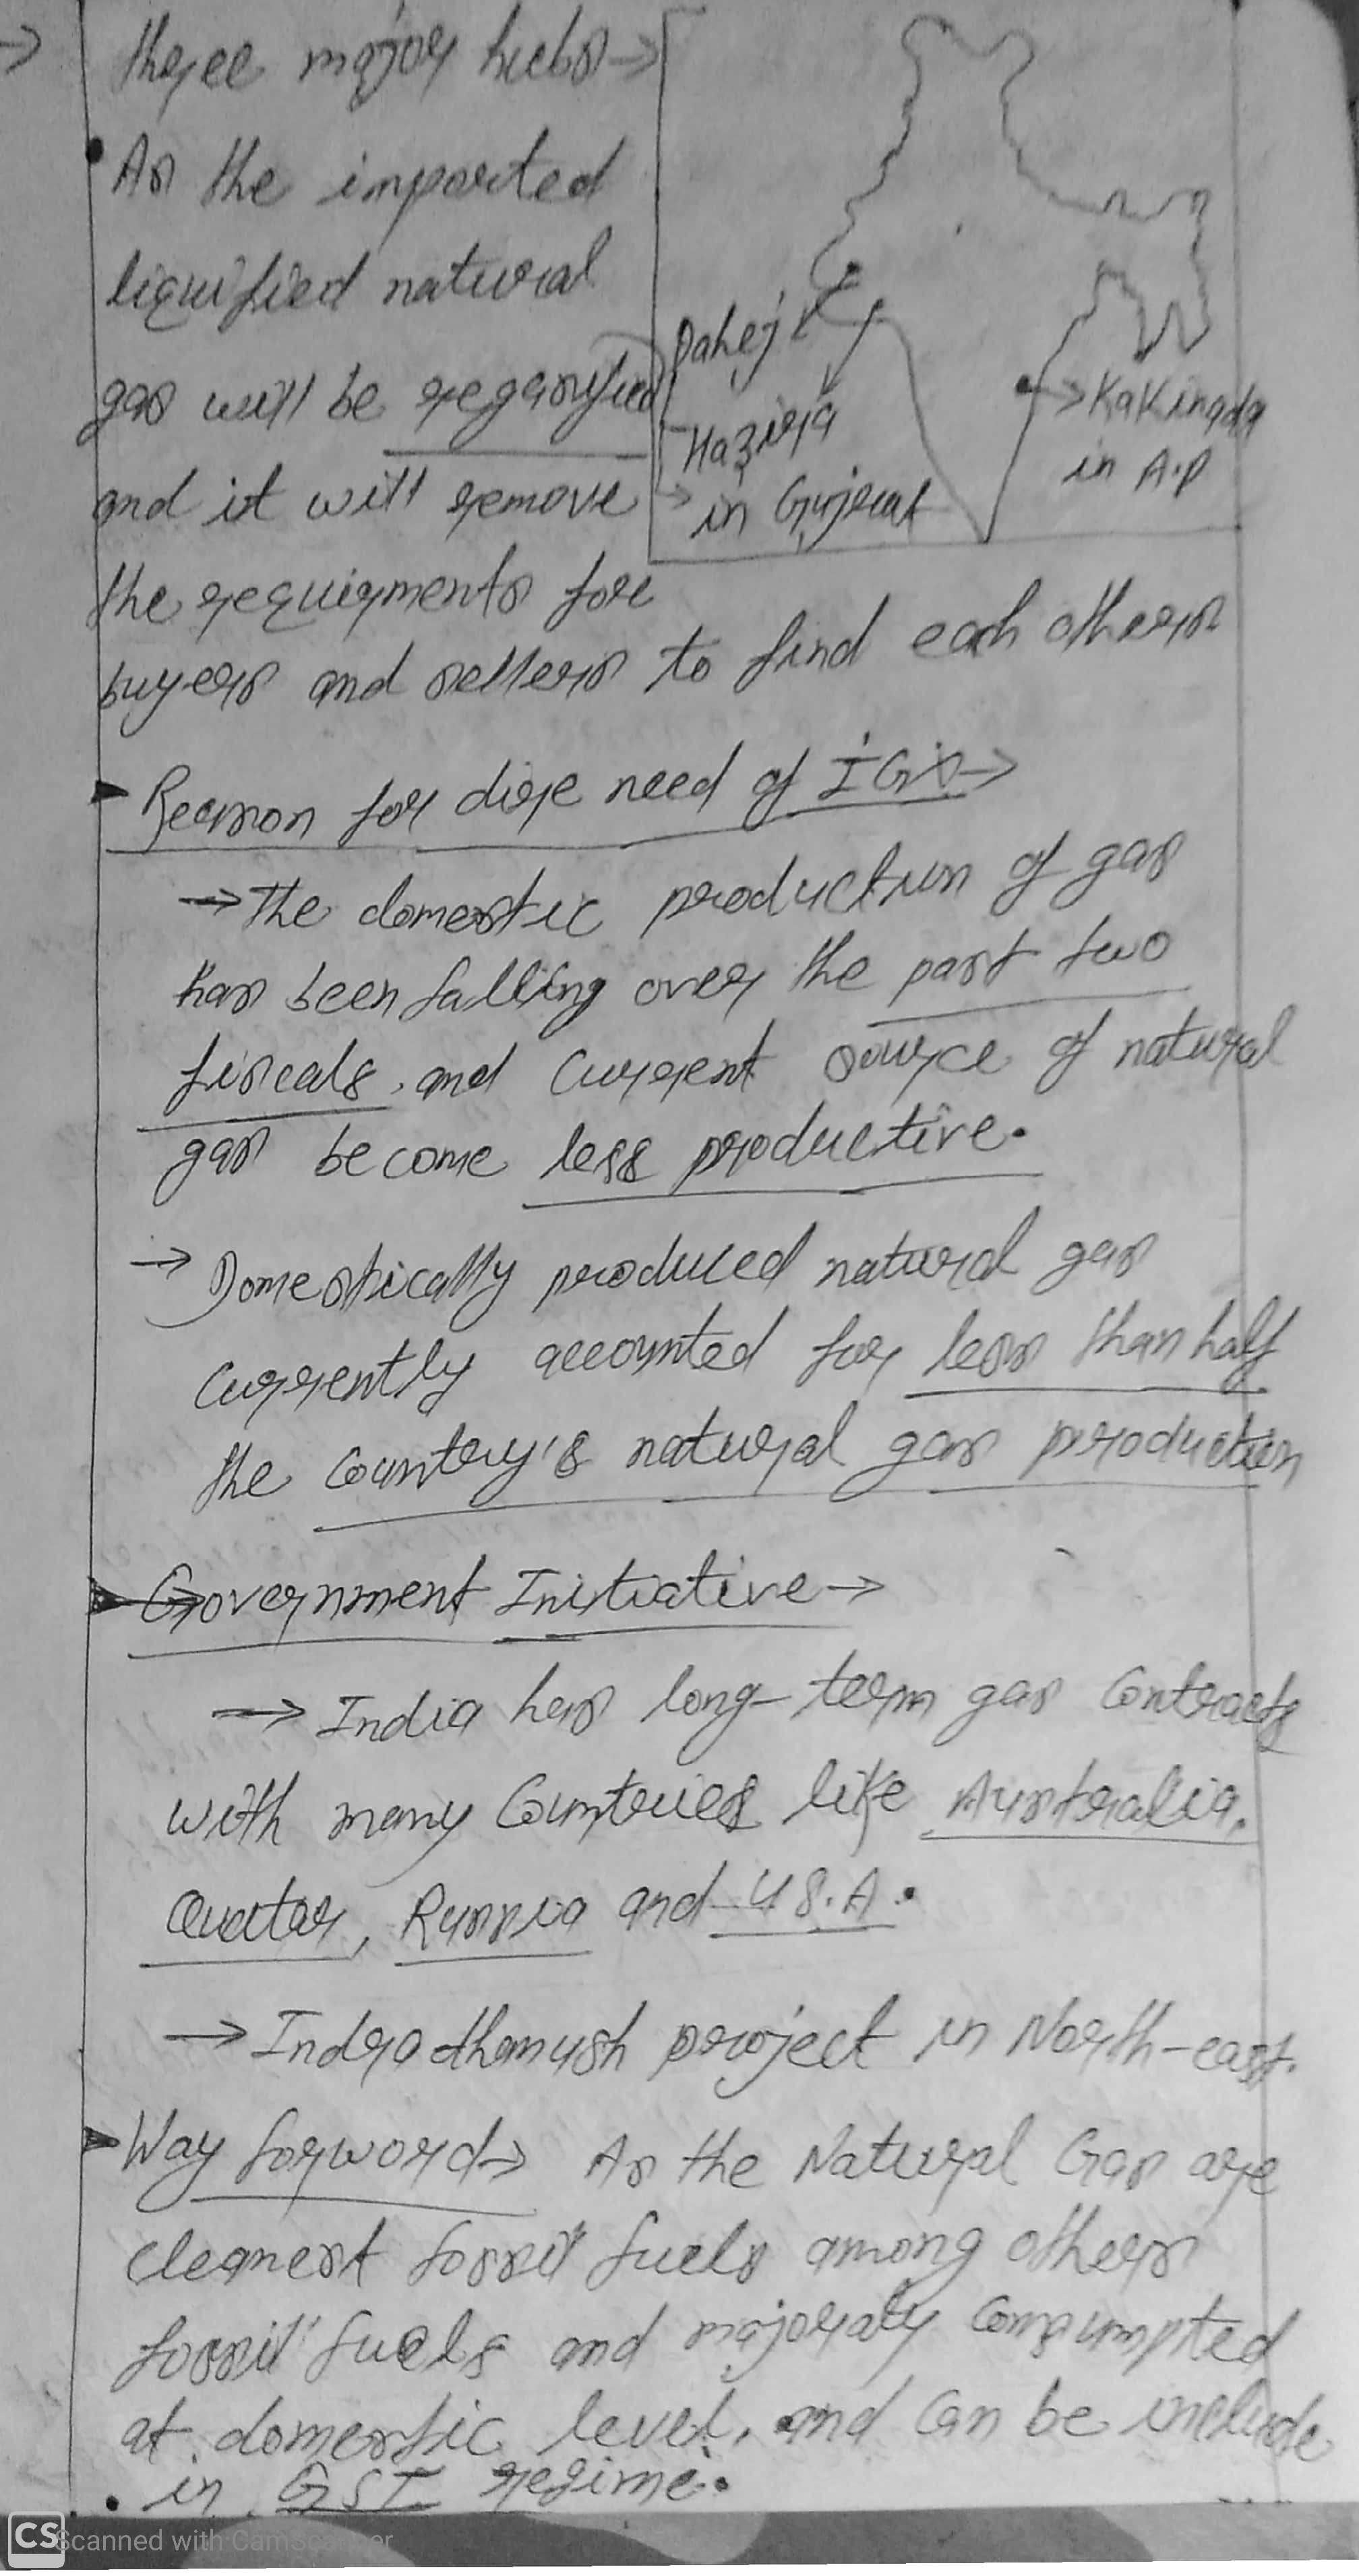 → three major hubs →
• As the imported
liquified natural
gas will be regassified
and it will remove
the requirments fore
buyers and sellers to find each others
Dahej
Hazira
→ in Gujrat
→ Kakinada
in A.P
Reason for dire need of IGX →
→ The domestic production of gas
has been falling over the past two
fiscals, and current source of natural
gas become less productive.
→ Domestically produced natural gas
currently accounted for less than half
the country's natural gas production
Government Initiative →
→ India has long-term gas contracts
with many countries like Australia,
Quatar, Russia and U S.A.
→ Indradhanush project in North-east.
Way forword → As the Natural Gas are
cleanest fossil fuels among others
fossil fuels and majoraty consumpted
at domestic level, and can be include
• in GST regime.
CS Scanned with CamScanner